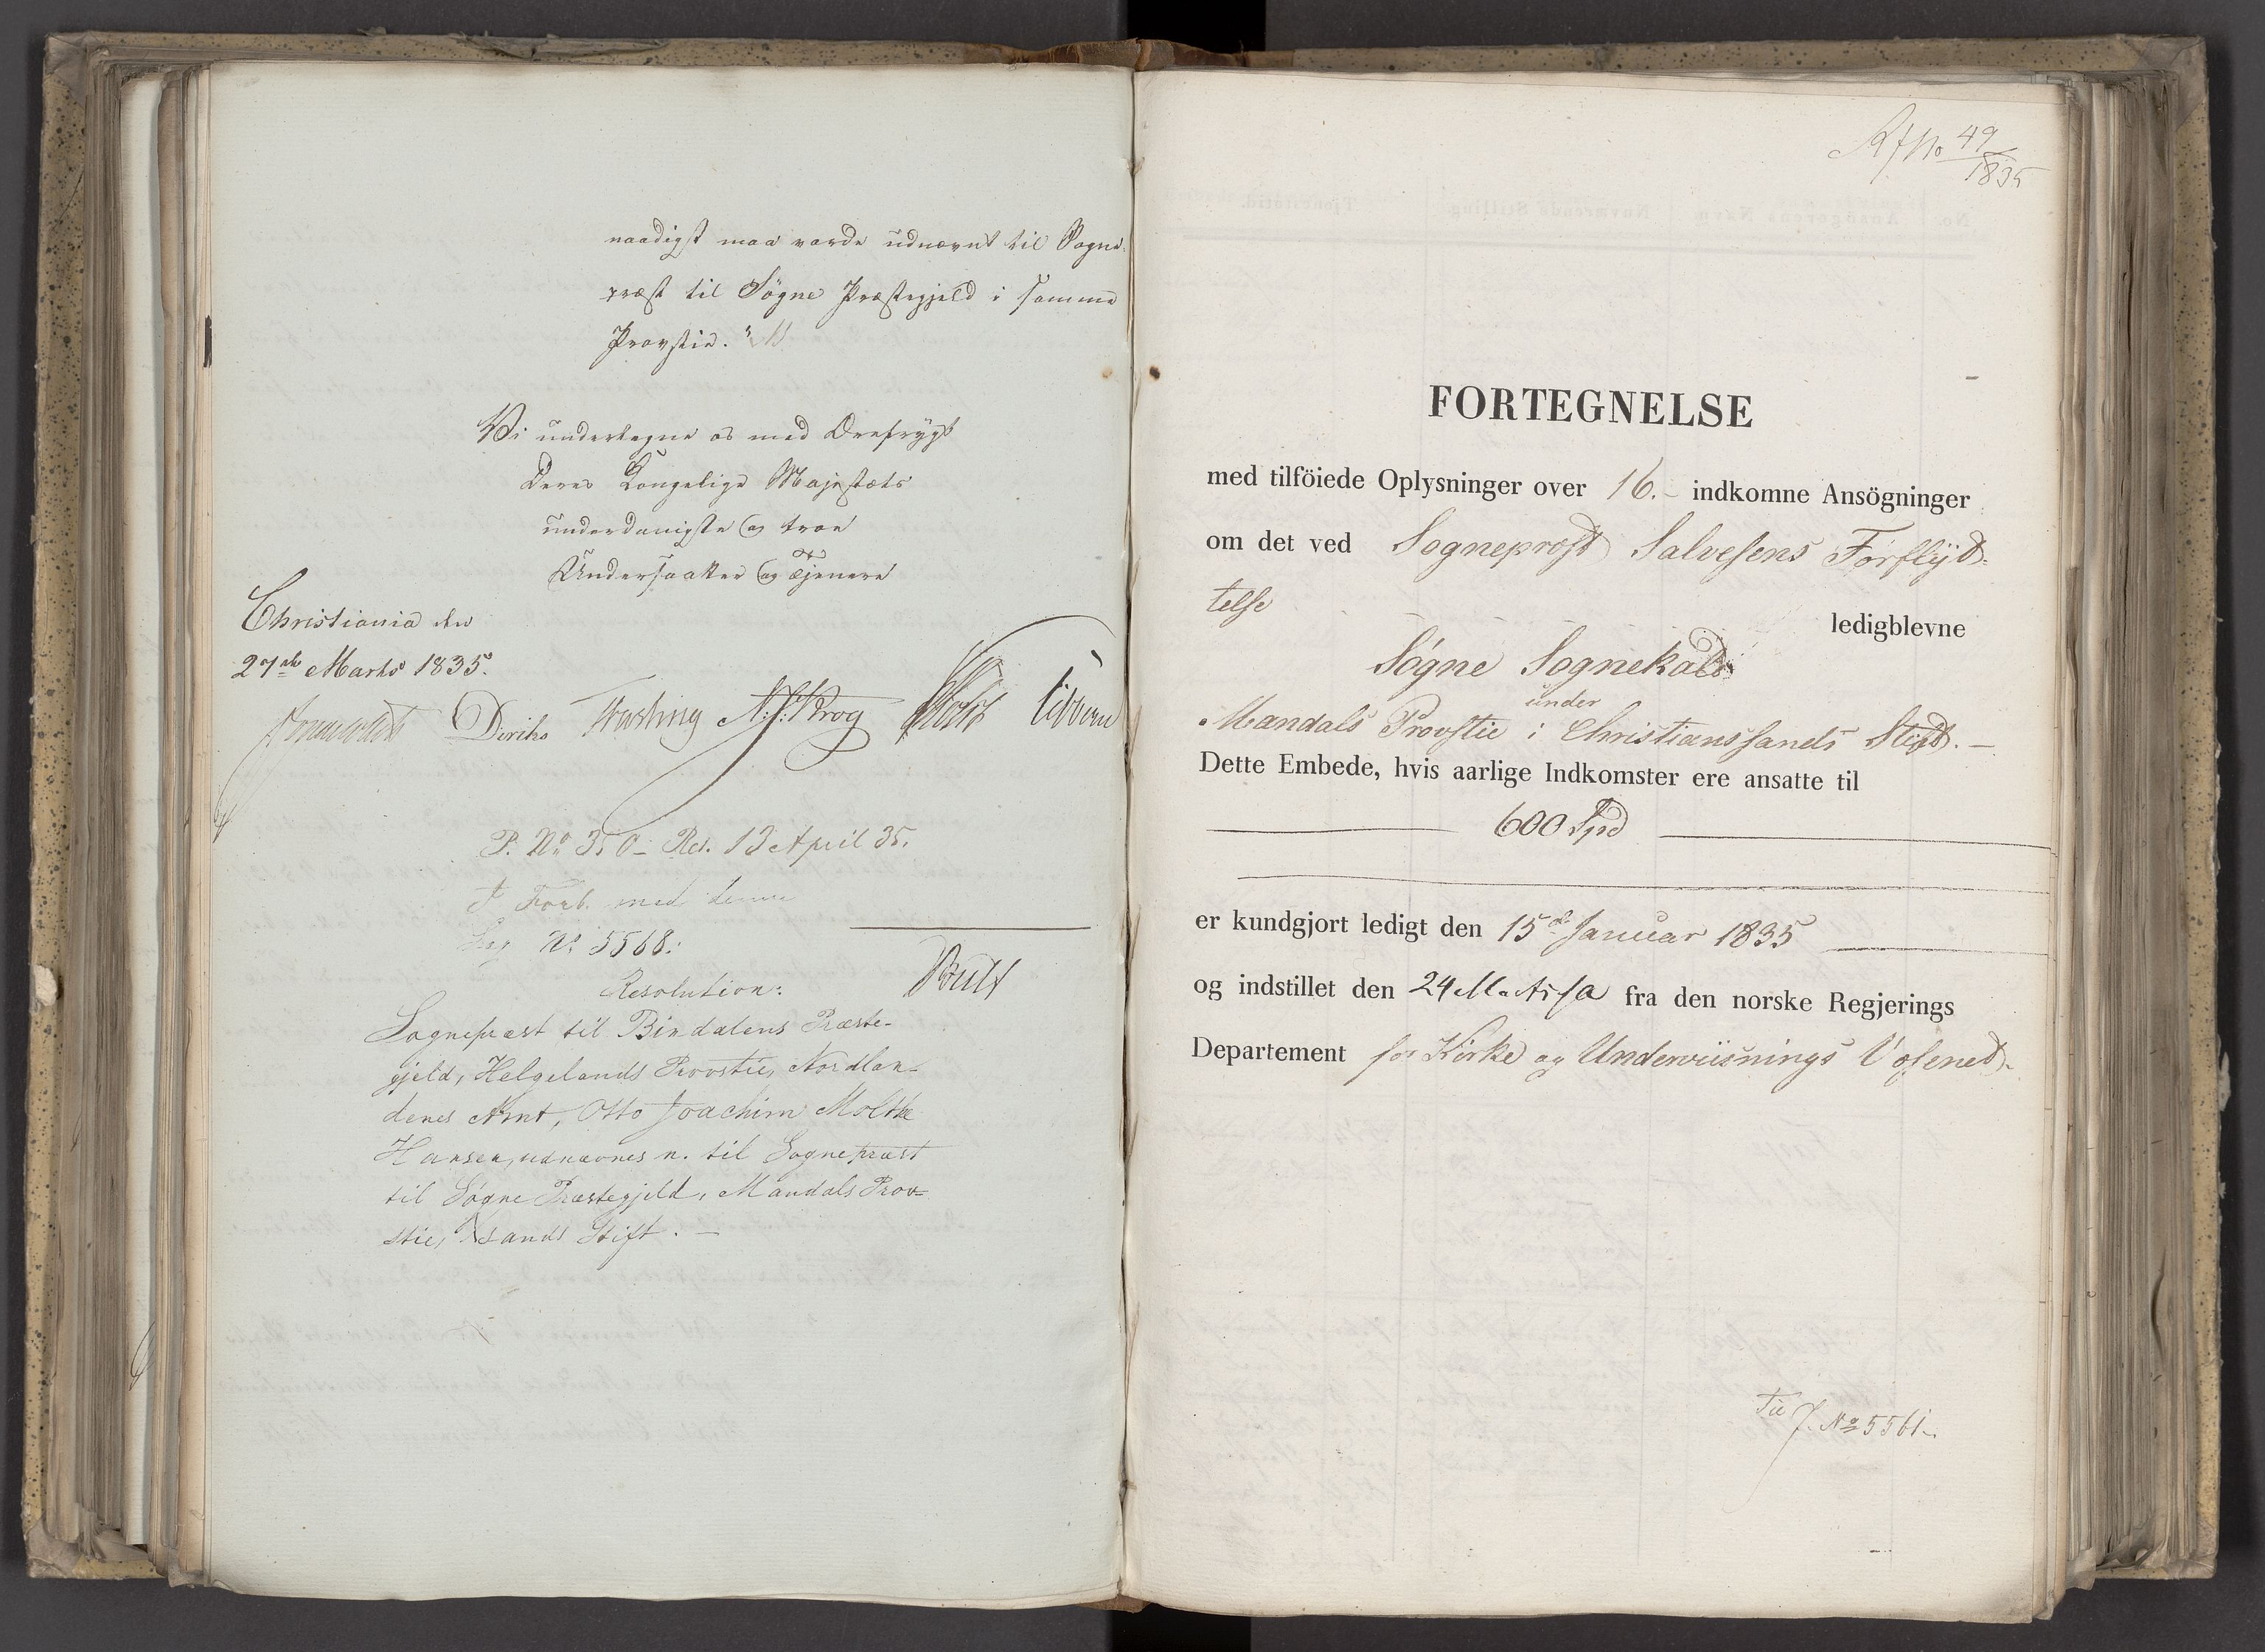 naadigst maa vorde udnævnt til Sogne-
præst til Søgne Præstegjeld i samme
Provstie."
Vi undertegne os med Ærefrygt
Deres Kongelige Majestæts
underdanigste og troe
Undersaatter og Tjenere
Christiania den
27de Marts 1835.
Diriks N: J: Krog Holst Vibe
P. No 350 - Res. 13 April 35.
I Forb. med denne
No 5568.
Resolution:
Sognepræst til Bindalens Præste-
gjeld, Helgelands Provstie, Nordlan-
denes Amt, Otto Joachim Moltke
Hansen, udnævnes n. til Sognepræst
til Søgne Præstegjeld, Mandals Prov-
stie, Xsands Stift. -
No 49/1835
FORTEGNELSE
med tilföiede Oplysninger over 16.- indkomne Ansögninger
om det ved Sogneprest Salvesens Forflyt-
telse
ledigblevne
Søgne Sognekald
under
Mandals Provstie i Christianssands Stift. -
Dette Embede, hvis aarlige Indkomster ere ansatte til
600 Spd
er kundgjort ledigt den 15de Januar 1835
og indstillet den 24 Marts s a fra den norske Regjerings
Departement for Kirke og Underviisnings Væsenet.
Til J. No 5561.